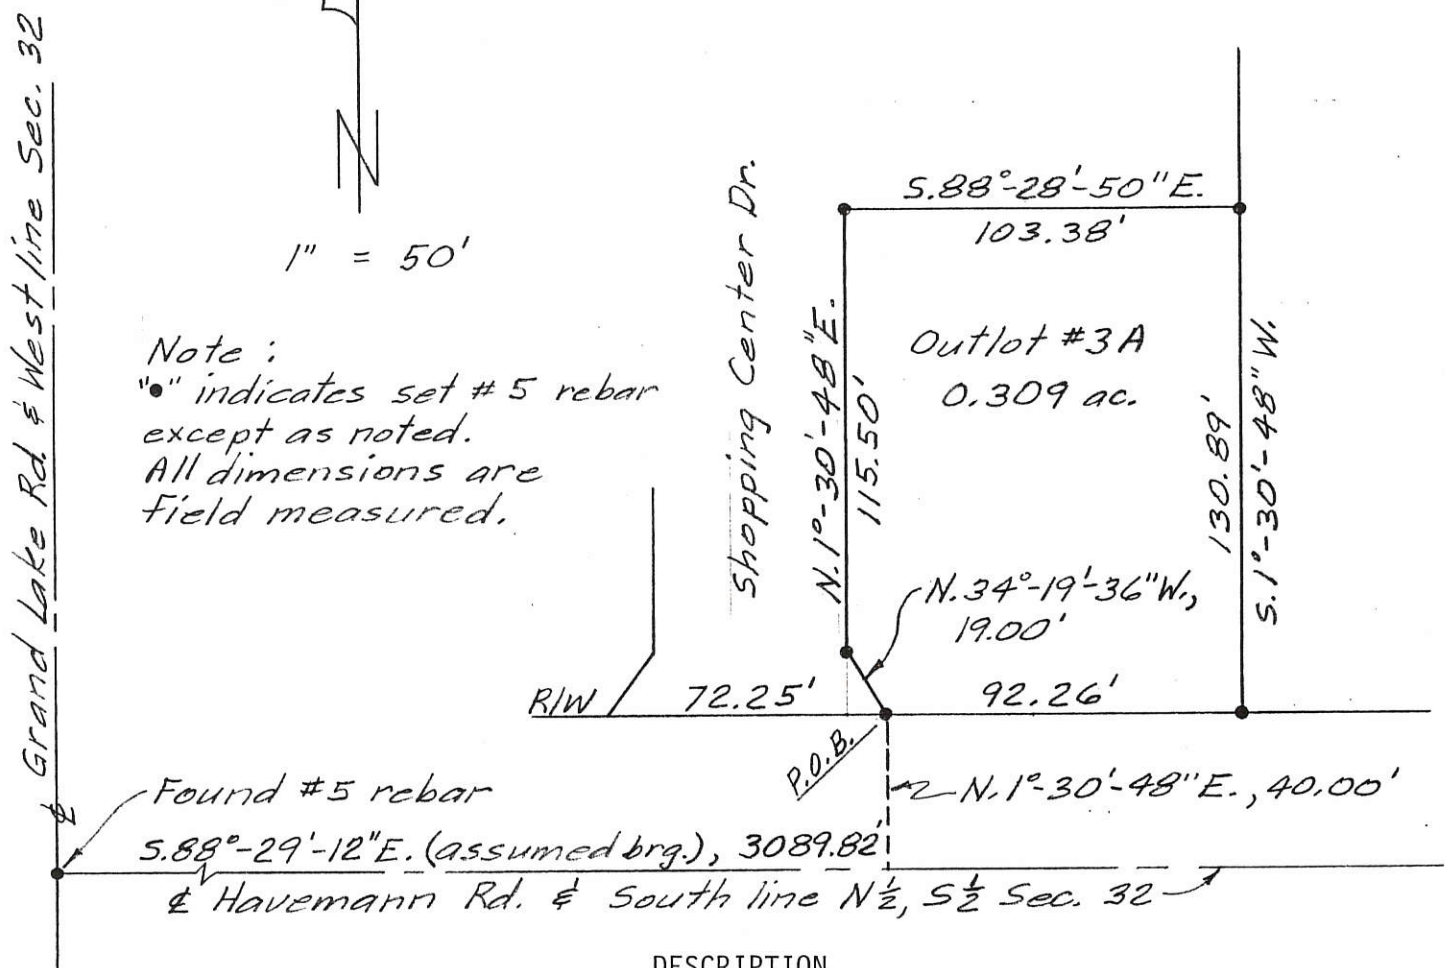 Grand Lake Rd. & West line Sec. 32
N
1" = 50'
Note :
"•" indicates set #5 rebar
except as noted.
All dimensions are
field measured.
Shopping Center Dr.
S.88°-28'-50"E.
103.38'
Outlot #3A
0.309 ac.
N.1°-30'-48"E.
115.50'
130.89'
S.1°-30'-48"W.
N.34°-19'-36"W.,
19.00'
R/W
72.25'
92.26'
P.O.B.
N.1°-30'-48"E., 40.00'
Found #5 rebar
℄
S.88°-29'-12"E. (assumed brg.), 3089.82'
℄ Havemann Rd. & South line N½, S½ Sec. 32
DESCRIPTION